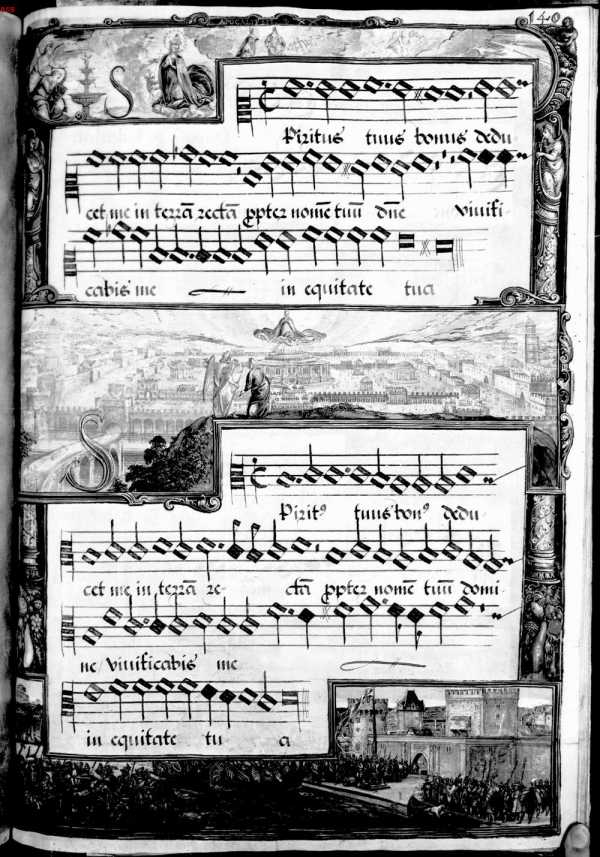 140
APOCALYPSIS
Spiritus tuus bonus dedu-
cet me in terrā rectā ꝓpter nomē tuū dn̄e viuifi-
cabis me in equitate tua
Spiritꝰ tuus bonꝰ dedu-
cet me in terrā re- ctā ꝓpter nomē tuū domi-
ne viuificabis me
in equitate tu a